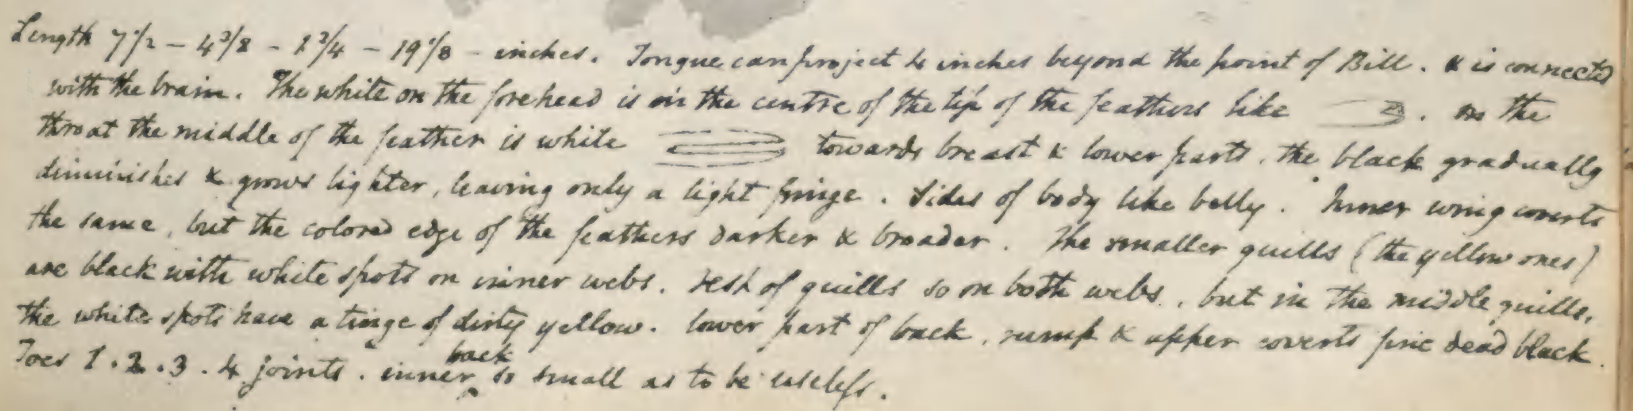 Length 7 1/2 - 4 3/8 - 1 3/4 - 19 1/8 - inches. Tongue can project 4 inches beyond the point of Bill. & is connected
with the brain. The white on the forehead is in the centre of the tip of the feathers like . on the
throat the middle of the feather is white towards breast & lower parts, the black gradually
diminishes & grows lighter, leaving only a light fringe. Sides of body like belly. Inner wing coverts
the same, but the colored edge of the feathers darker & broader. The smaller quills (the yellow ones)
are black with white spots on inner webs. rest of quills so on both webs, but in the middle quills,
the white spots have a tinge of dirty yellow. lower part of back, rump & upper coverts fine dead black.
Toes 1.2.3.4 joints. inner back so small as to be useless.